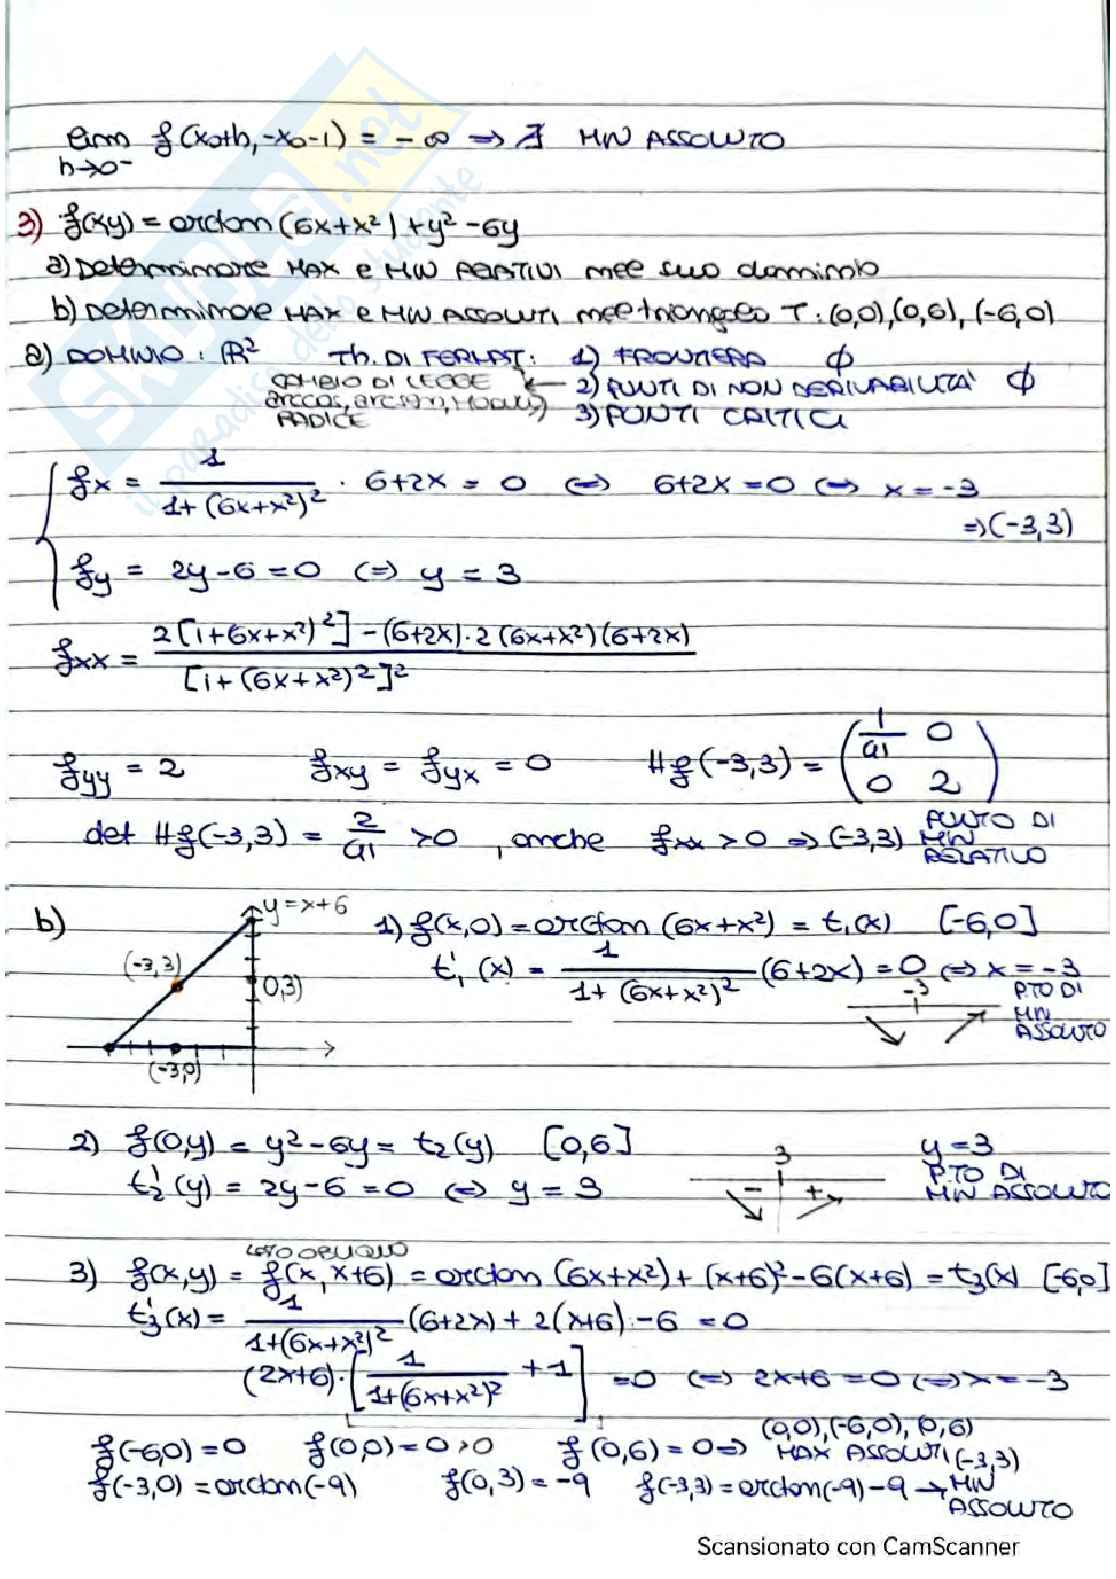 lim f(x₀+h, -x₀-1) = -∞ ⇒ ∄ MIN ASSOLUTO
h→0⁻
3) f(x,y) = arctan(6x+x²)+y²-6y
a) Determinare MAX e MIN RELATIVI nel suo dominio
b) Determinare MAX e MIN ASSOLUTI nel triangolo T: (0,0),(0,6),(-6,0)
a) DOMINIO: ℝ² Th. DI FERMAT: 1) FRONTIERA ∅
CAMBIO DI LEGGE ← 2) PUNTI DI NON DERIVABILITA' ∅
arccos, arcsin, MODULO,
RADICE 3) PUNTI CRITICI
fx = 1/(1+(6x+x²)²) · 6+2x = 0 ⇔ 6+2x=0 ⇔ x=-3
⇒(-3,3)
fy = 2y-6=0 ⇔ y=3
fxx = 2[1+6x+x²)²]-(6+2x)·2(6x+x²)(6+2x) / [1+(6x+x²)²]²
fyy = 2 fxy = fyx = 0 Hf(-3,3) = (1/41 0
0 2)
det Hf(-3,3) = 2/41 >0, anche fxx>0 ⇒ (-3,3) PUNTO DI
MIN
RELATIVO
b) y=x+6 1) f(x,0) = arctan(6x+x²) = t₁(x) [-6,0]
(-3,3) t₁'(x) = 1/(1+(6x+x²)²) (6+2x) = 0 ⇔ x=-3
0,3) -3 P.TO DI
MIN
ASSOLUTO
(-3,0)
2) f(0,y) = y²-6y = t₂(y) [0,6] 3 y=3
t₂'(y) = 2y-6=0 ⇔ y=3 - + P.TO DI
MIN ASSOLUTO
LATO OBLIQUO
3) f(x,y) = f(x,x+6) = arctan(6x+x²)+(x+6)²-6(x+6) = t₃(x) [-6,0]
t₃'(x) = 1/(1+(6x+x²)²) (6+2x)+2(x+6)-6 = 0
(2x+6)·[1/(1+(6x+x²)²) +1] =0 ⇔ 2x+6=0 ⇔ x=-3
(0,0),(-6,0),(0,6)
f(-6,0)=0 f(0,0)=0>0 f(0,6)=0⇒ MAX ASSOLUTI (-3,3)
f(-3,0)=arctan(-9) f(0,3)=-9 f(-3,3)=arctan(-9)-9 → MIN
ASSOLUTO
Scansionato con CamScanner
SKUOLA.not
il paradiso dello studente